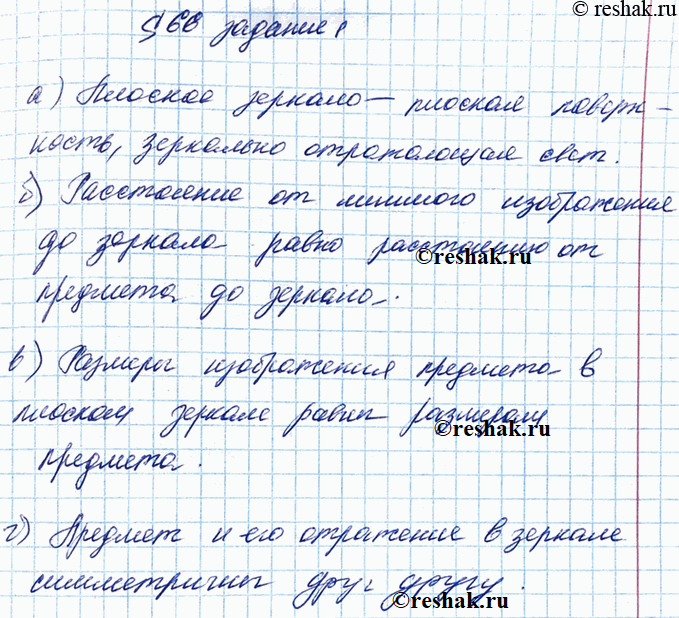 © reshak.ru
§ 66 задание 1
а) Плоское зеркало – плоская поверх-
ность, зеркально отражающая свет.
б) Расстояние от мнимого изображения
до зеркала равно расстоянию от
© reshak.ru
предмета до зеркала.
в) Размеры изображения предмета в
плоском зеркале равны размерам
© reshak.ru
предмета.
г) Предмет и его отражение в зеркале
симметричны друг другу.
© reshak.ru